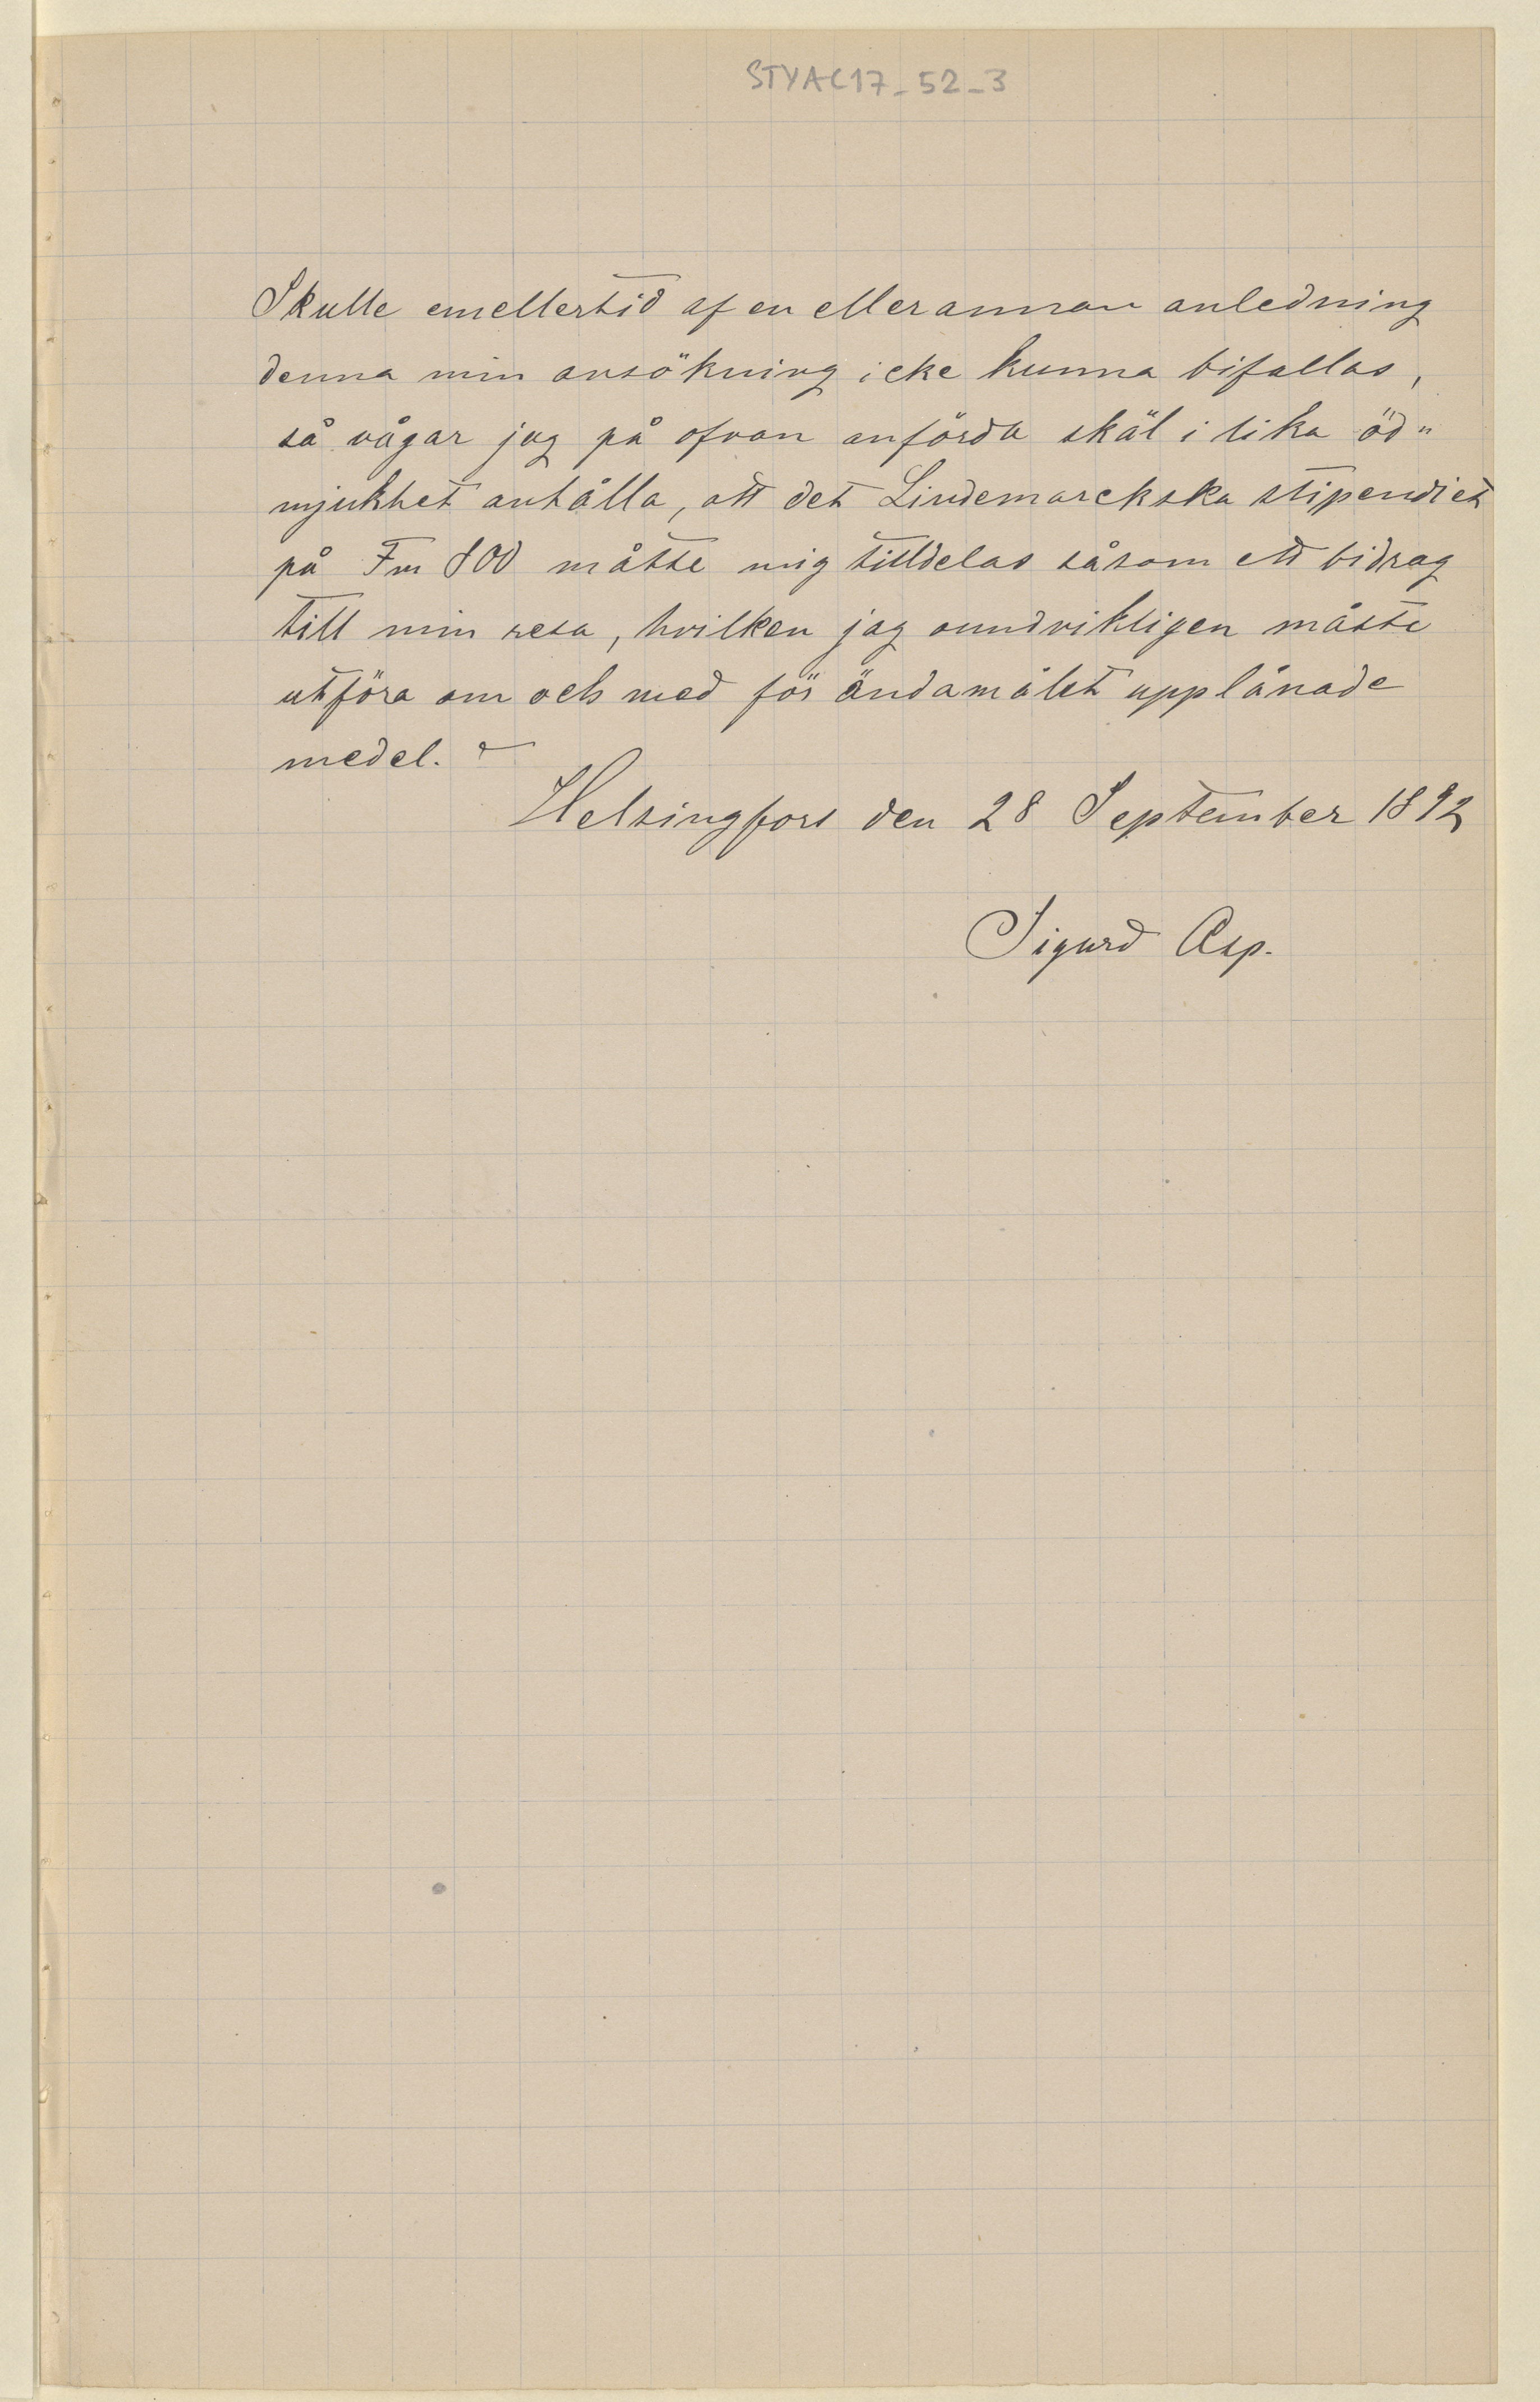 STYAC17_52_3
Skulle emellertid af en eller annan anledning
denna min ansökning icke kunna bifallas,
så vågar jag på ofvan anförda skäl i lika öd„
mjukhet anhålla, att det Lindemarckska stipendiet
på Fm 800 måtte mig tilldelas såsom ett bidrag
till min resa, hvilken jag oundvikligen måste
utföra om och med för ändamålet upplånade
medel. –
Helsingfors den 28 September 1892
Sigurd Asp.